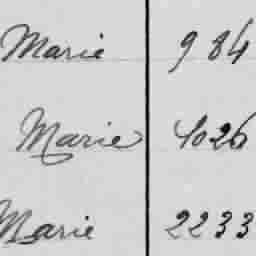 Marie 984
Marie 4026
Marie 2233